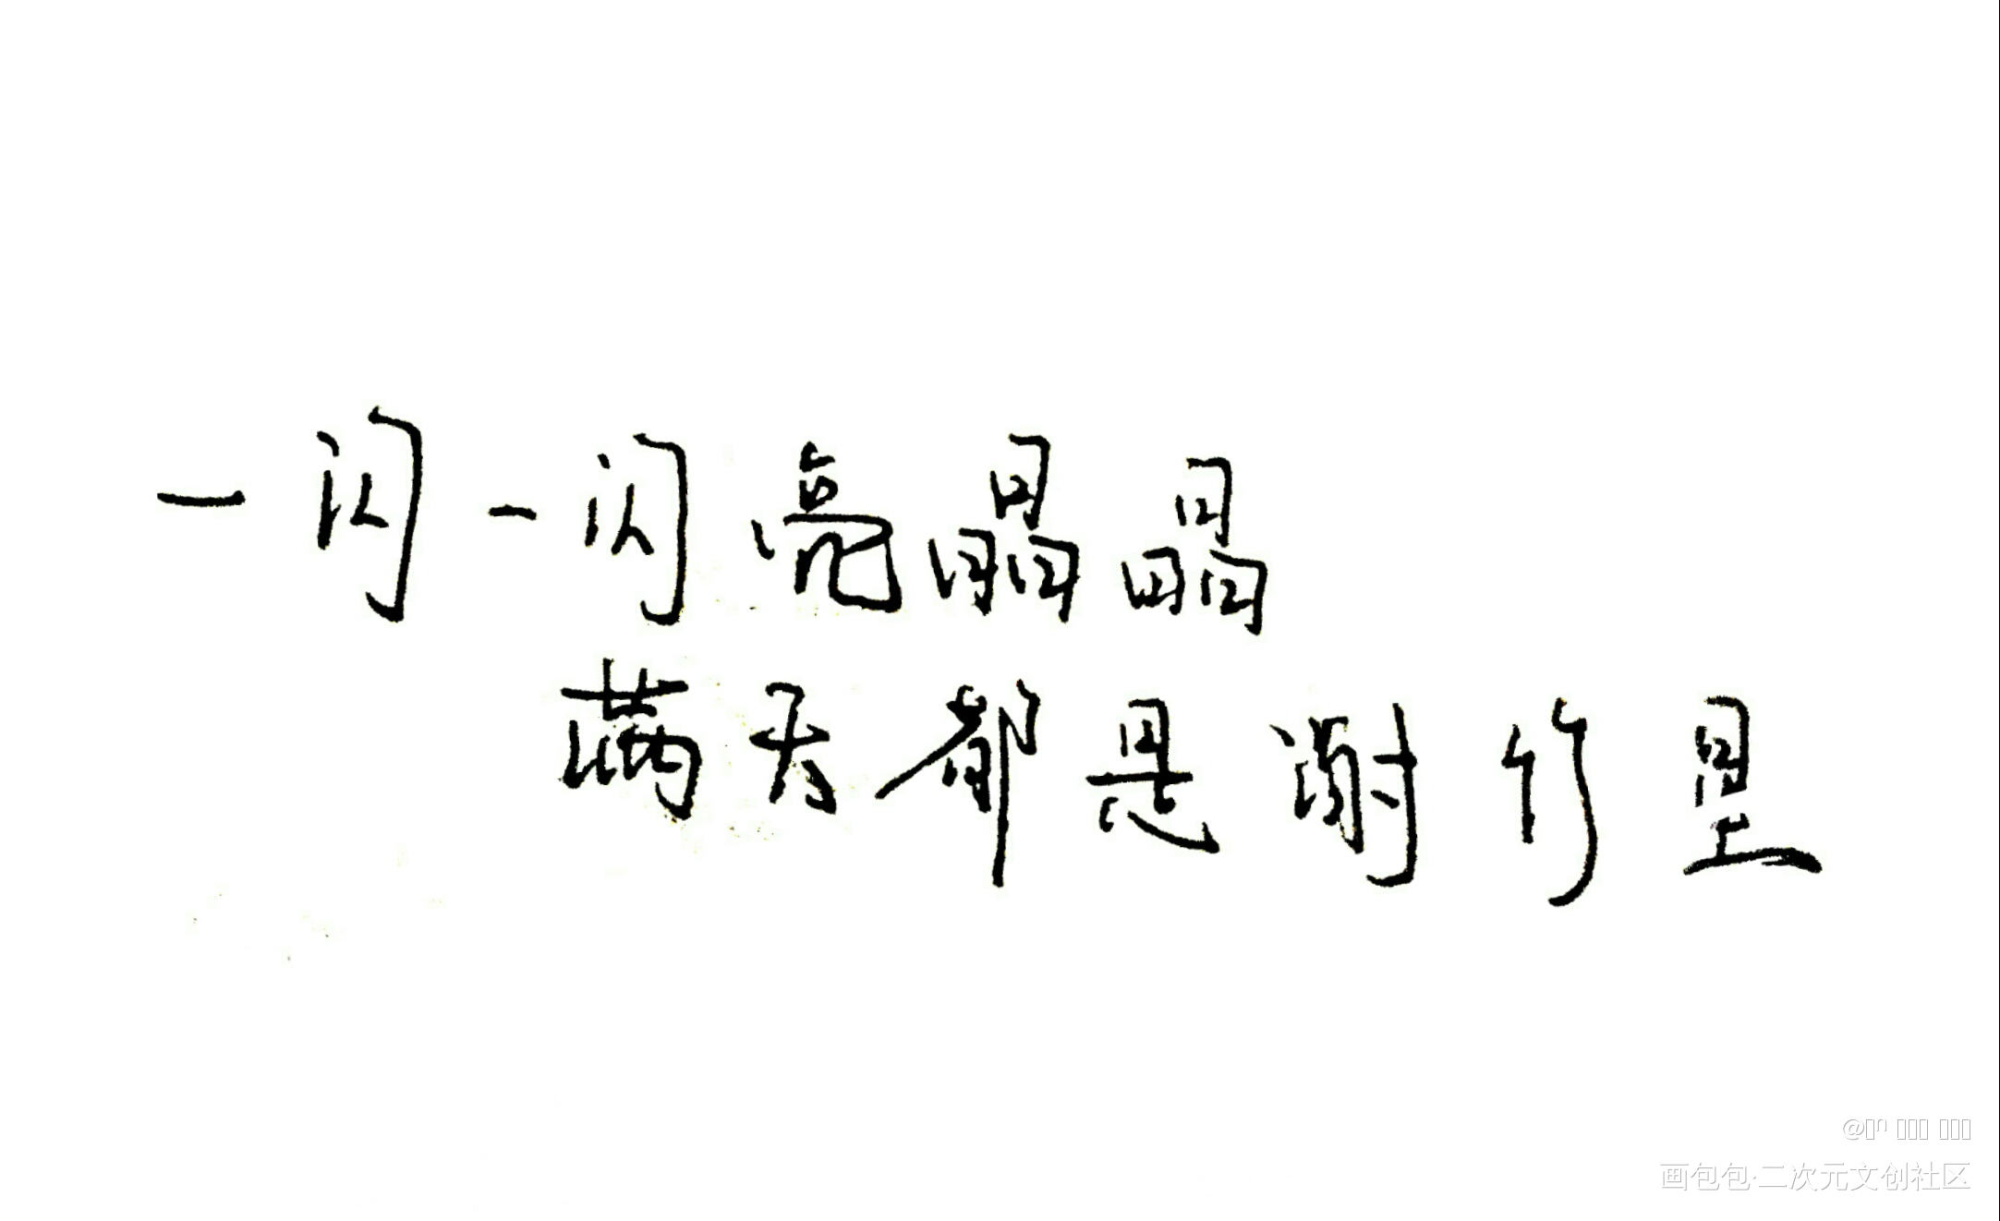 一闪一闪亮晶晶
满天都是谢竹星
画包包·二次元文创社区